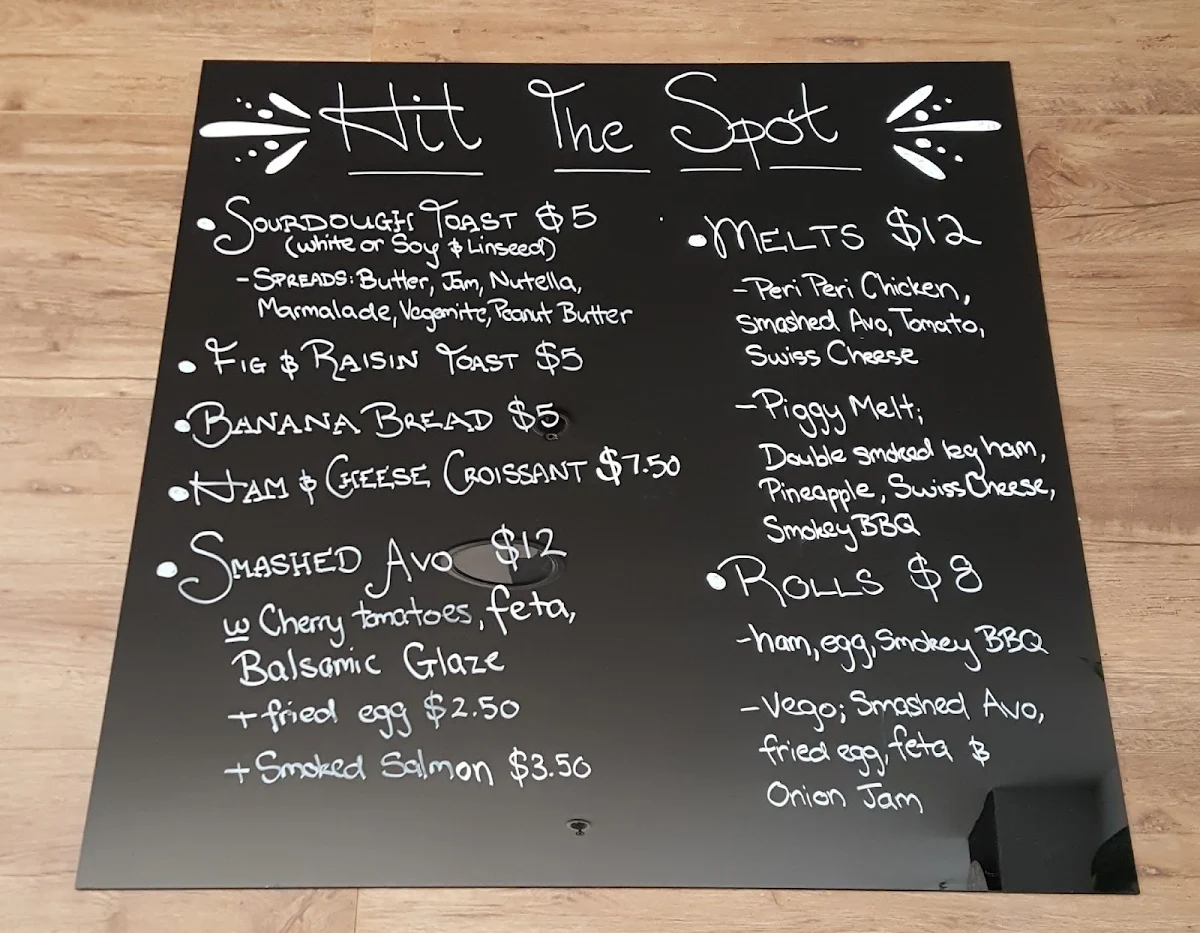 Hit The Spot
• Sourdough Toast $5
(white or Soy & Linseed)
- Spreads: Butter, Jam, Nutella,
Marmalade, Vegemite, Peanut Butter
• Fig & Raisin Toast $5
• Banana Bread $5
• Ham & Cheese Croissant $7.50
• Smashed Avo $12
w Cherry tomatoes, feta,
Balsamic Glaze
+ fried egg $2.50
+ Smoked Salmon $3.50
• Melts $12
- Peri Peri Chicken,
Smashed Avo, Tomato,
Swiss Cheese
- Piggy Melt;
Double smoked leg ham,
Pineapple, Swiss Cheese,
Smokey BBQ
• Rolls $8
- ham, egg, Smokey BBQ
- Vego; Smashed Avo,
fried egg, feta &
Onion Jam